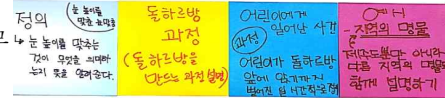 정의
눈 높이를
맞춘 눈맞춤
↳ 눈 높이를 맞추는
것이 무엇을 의미하
는지 뜻을 알려준다.
돌하르방
과정
(돌하르방을
만드는 과정 설명)
어린이에게
일어난 사건
과정
어린이가 돌하르방
앞에 오기까지
벌어진 일 시간 순으로
예시
- 지역의 명물
제주도뿐만 아니라
다른 지역의 명물
함께 설명하기